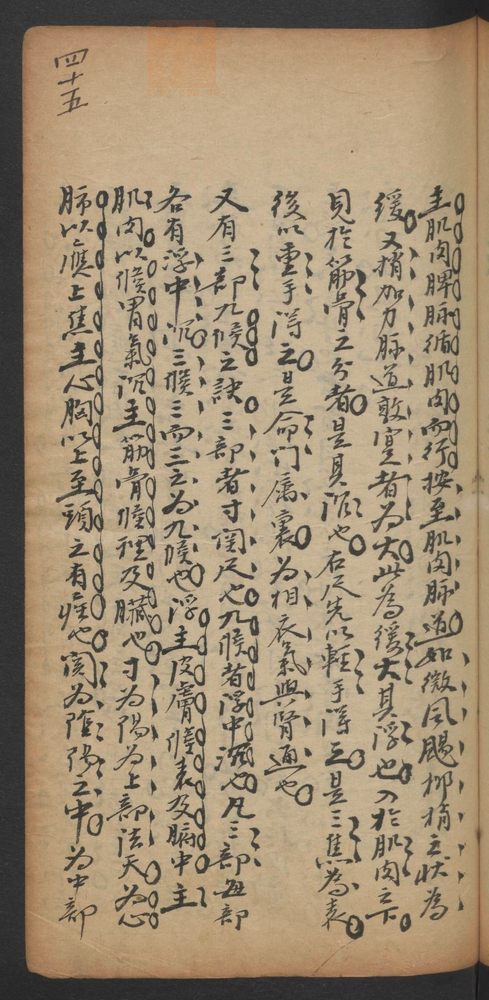 四十五
主肌肉脾脉循肌肉而行按至肌肉脉道如微風颺柳梢之狀為
緩又稍加力脉道敦實者為大此為緩大其浮也入於肌肉之下
見於筋骨之分者是其沉也右尺先以輕手得之是三焦為表
後以重手得之是命門屬裏為相衣氣與腎通也
又有三部九候之訣三部者寸関尺也九候者浮中沉也凡三部每部
各有浮中沉三候三而三之為九候也浮主皮膚候表及腑中主
肌肉以候胃氣沉主筋骨候裡及臟也寸為陽為上部法天為心
肺以應上焦主心胸以上至頭之有疾也関為陰陽之中為中部